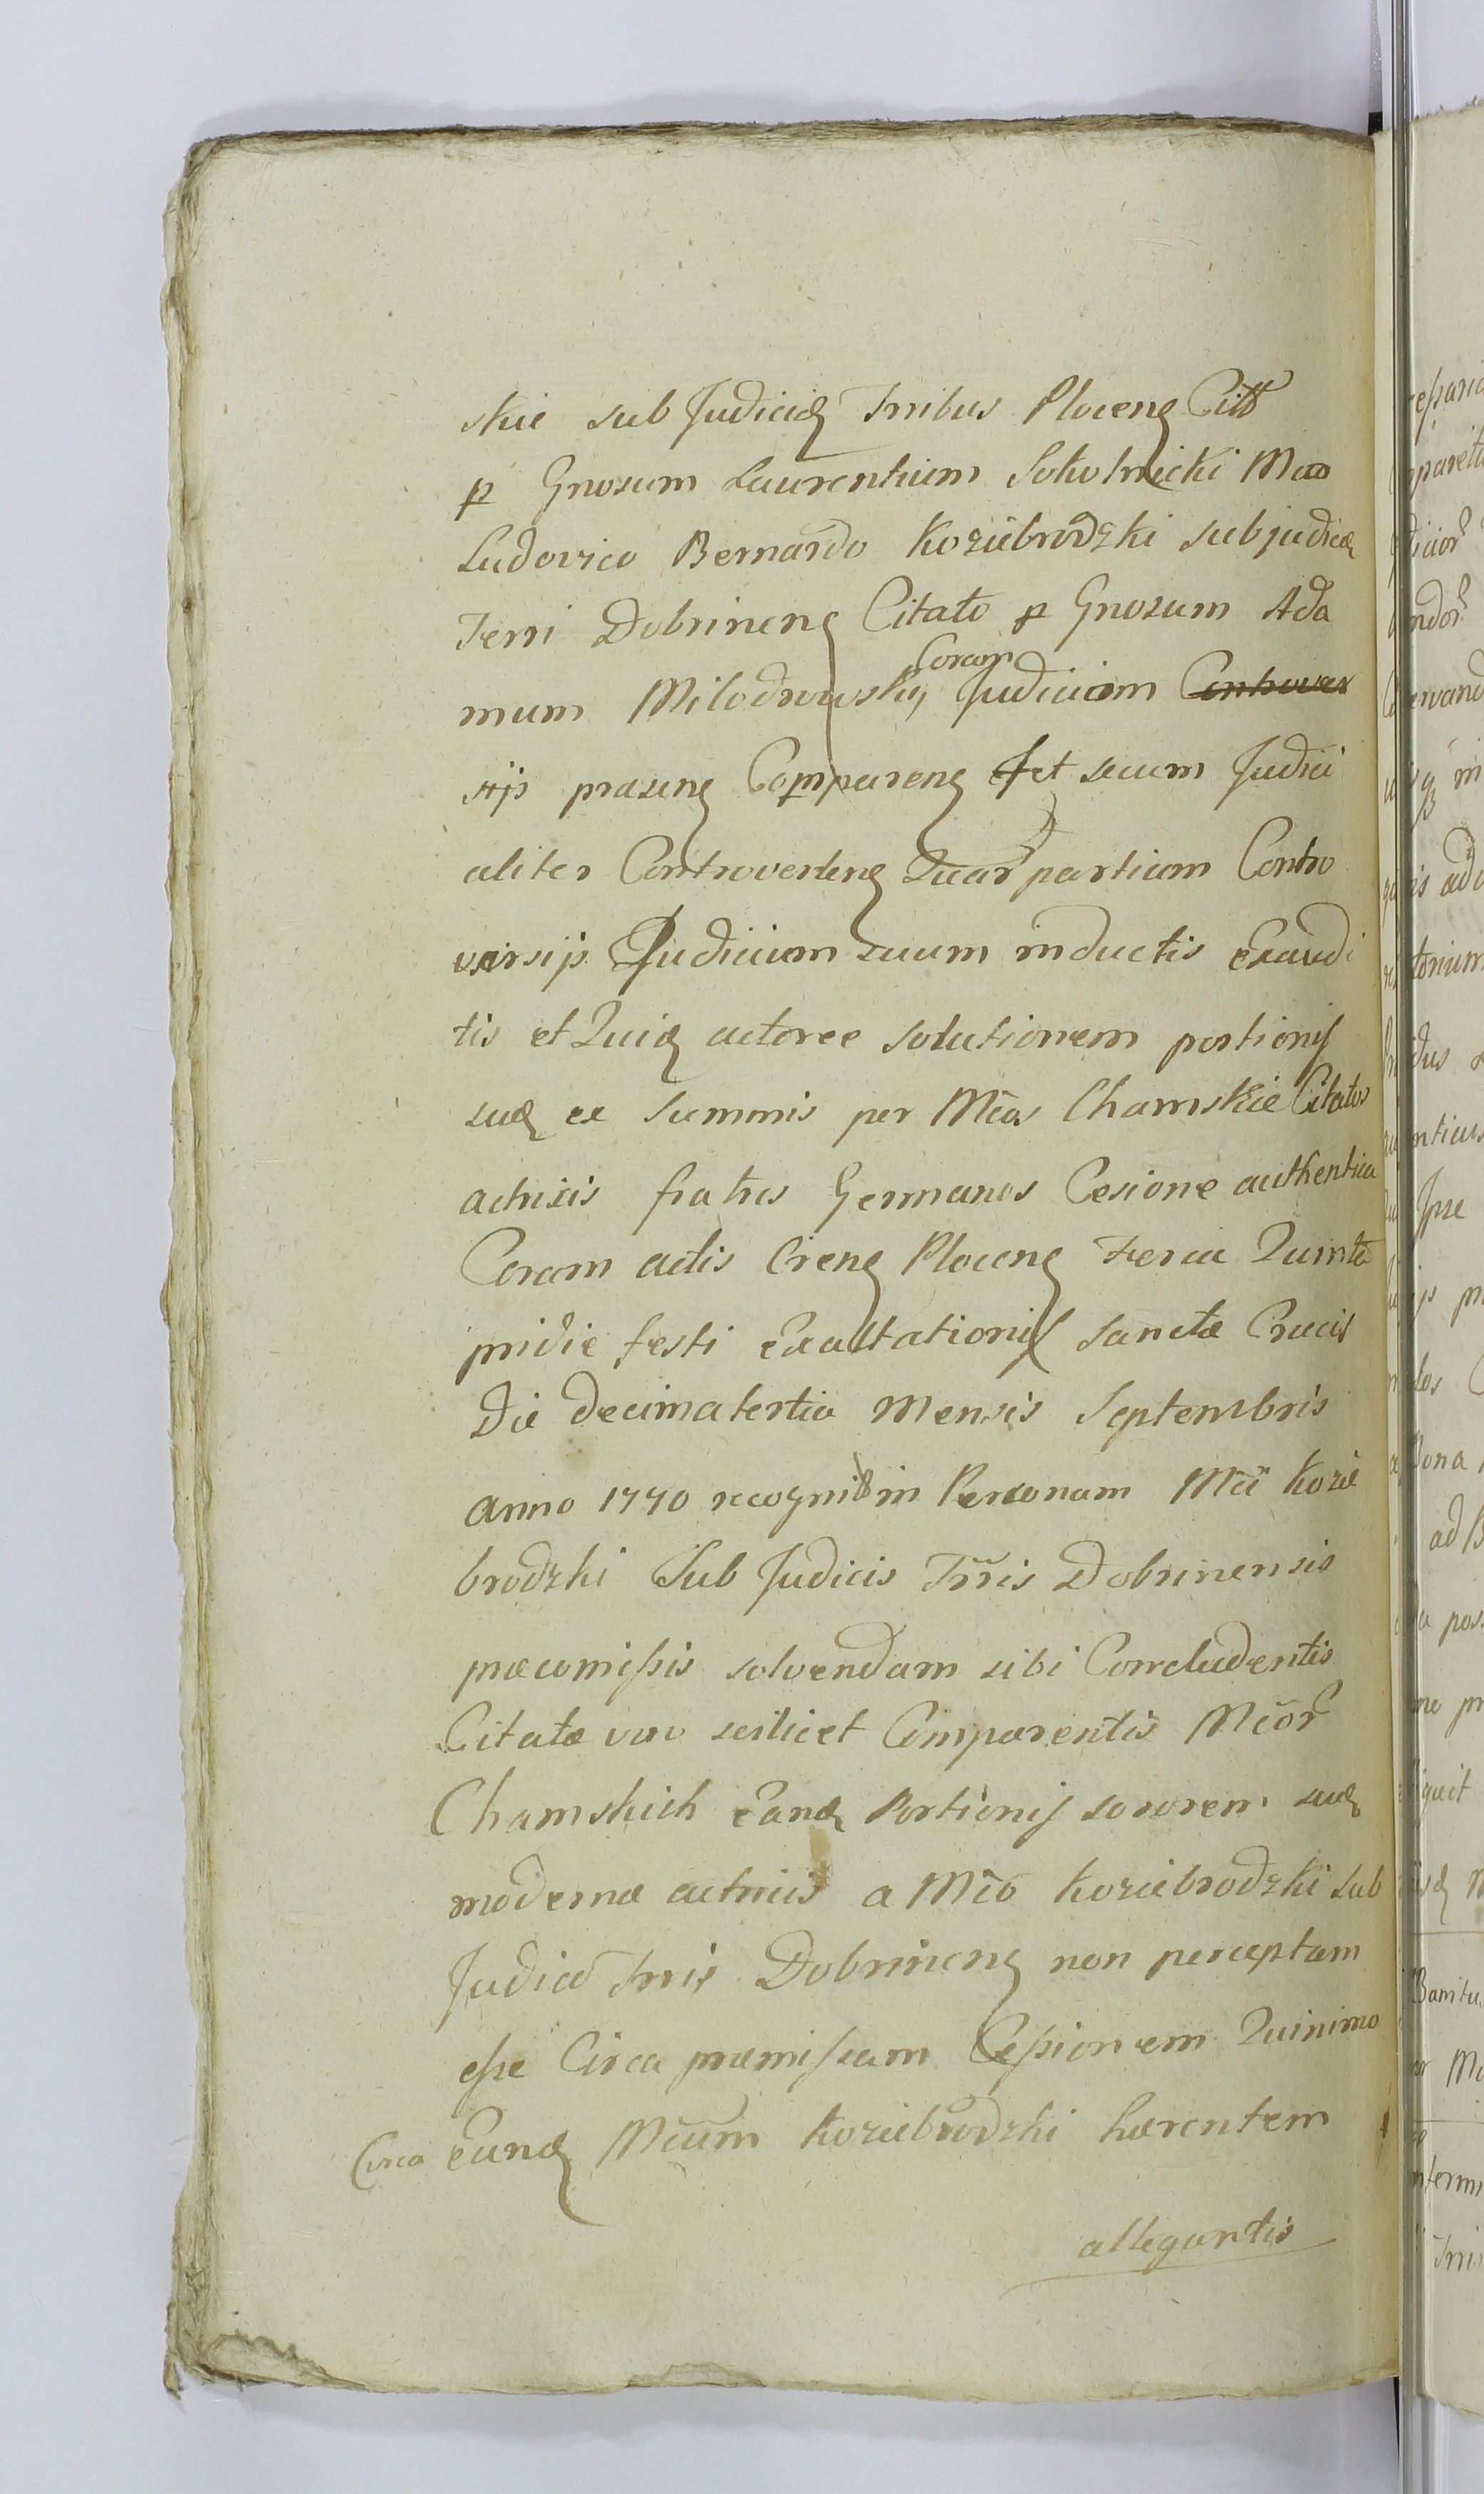 skie sub Judicid Trribus Plocens Citt
p Gnosum Laurentium Sokolnicki Mco
Ludovico Bernardo Koziebrodzki subjudice
Terri Dobrinens Citato p Gnosum Ada
mum Milodrowsky Coram Judiciom Controver
sijs præsens Comparens et secum Judici
aliter Controvertens Quar partium Contro
versijs Judicium suum inductis exaudi
tis et Quia actoree solutionem portionis
suæ ex summis per Mcos Chamskie Citatos
actricis fratres Germanos Cesione authentica
Coram actis Crens Plocens Feria Quinta
pridie festi Exaltationis Sanctæ Crucis
Die decimatertia Mensis Septembris
anno 1770 recognit in Personam Mci Kozie
brodzki Sub Judicis Trris Dobrinensis
præcomissis solvendam sibi Concludentis
Citatæ vero scilicet Comparentis Mcor
Chamskich Eand Portionis sororem suæ
modernæ actricis a Mco Koziebrodzki Sub
Judice Trris Dobrinens non perceptam
esse Circa præmissam Cessionem Quinimo
Circa Eund Mcum Koziebrodzki hærentem
allegantis